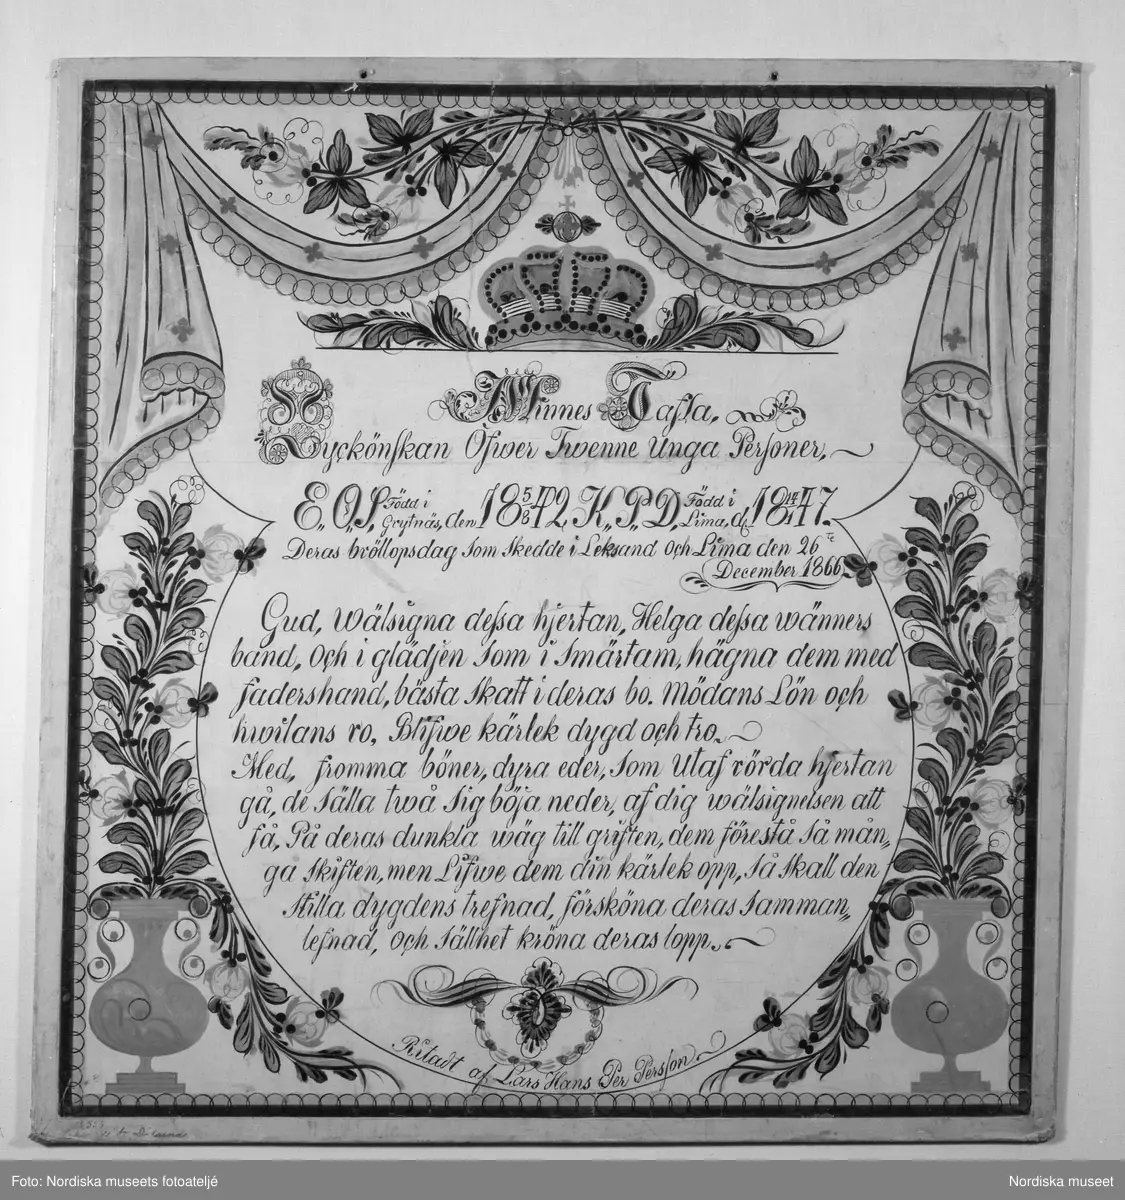 Minnes Tafla,
Lyckönskan Öfwer Twenne Unga Personer,
E. O. S. Född i Grytnäs, den 18 5/8 42, K. P. D. Född i Lima, d. 18 14/1 47.
Deras bröllopsdag Som Skedde i Leksand Och Lima den 26 te
December 1866.
Gud, wälsigna dessa hjertan, Helga dessa wänners
band, Och i glädjen Som i Smärtam, hägna dem med
fadershand, bästa Skatt i deras bo. Mödans Lön och
hwilans ro, Blifwe kärlek dygd och tro.
Med, fromma böner, dyra eder, Som Utaf rörda hjertan
gå, de Sälla twå Sig böja neder, af dig wälsignelsen att
få, På deras dunkla wäg till griften, dem förestå Så mån„
ga Skiften, men Lifwe dem din kärlek opp, Så Skall den
Stilla dygdens trefnad, försköna deras Samman„
lefnad, Och Sällhet kröna deras lopp.
Ritadt af Lars Hans Per Persson
Foto: Nordiska museets fotoateljé
Nordiska museet